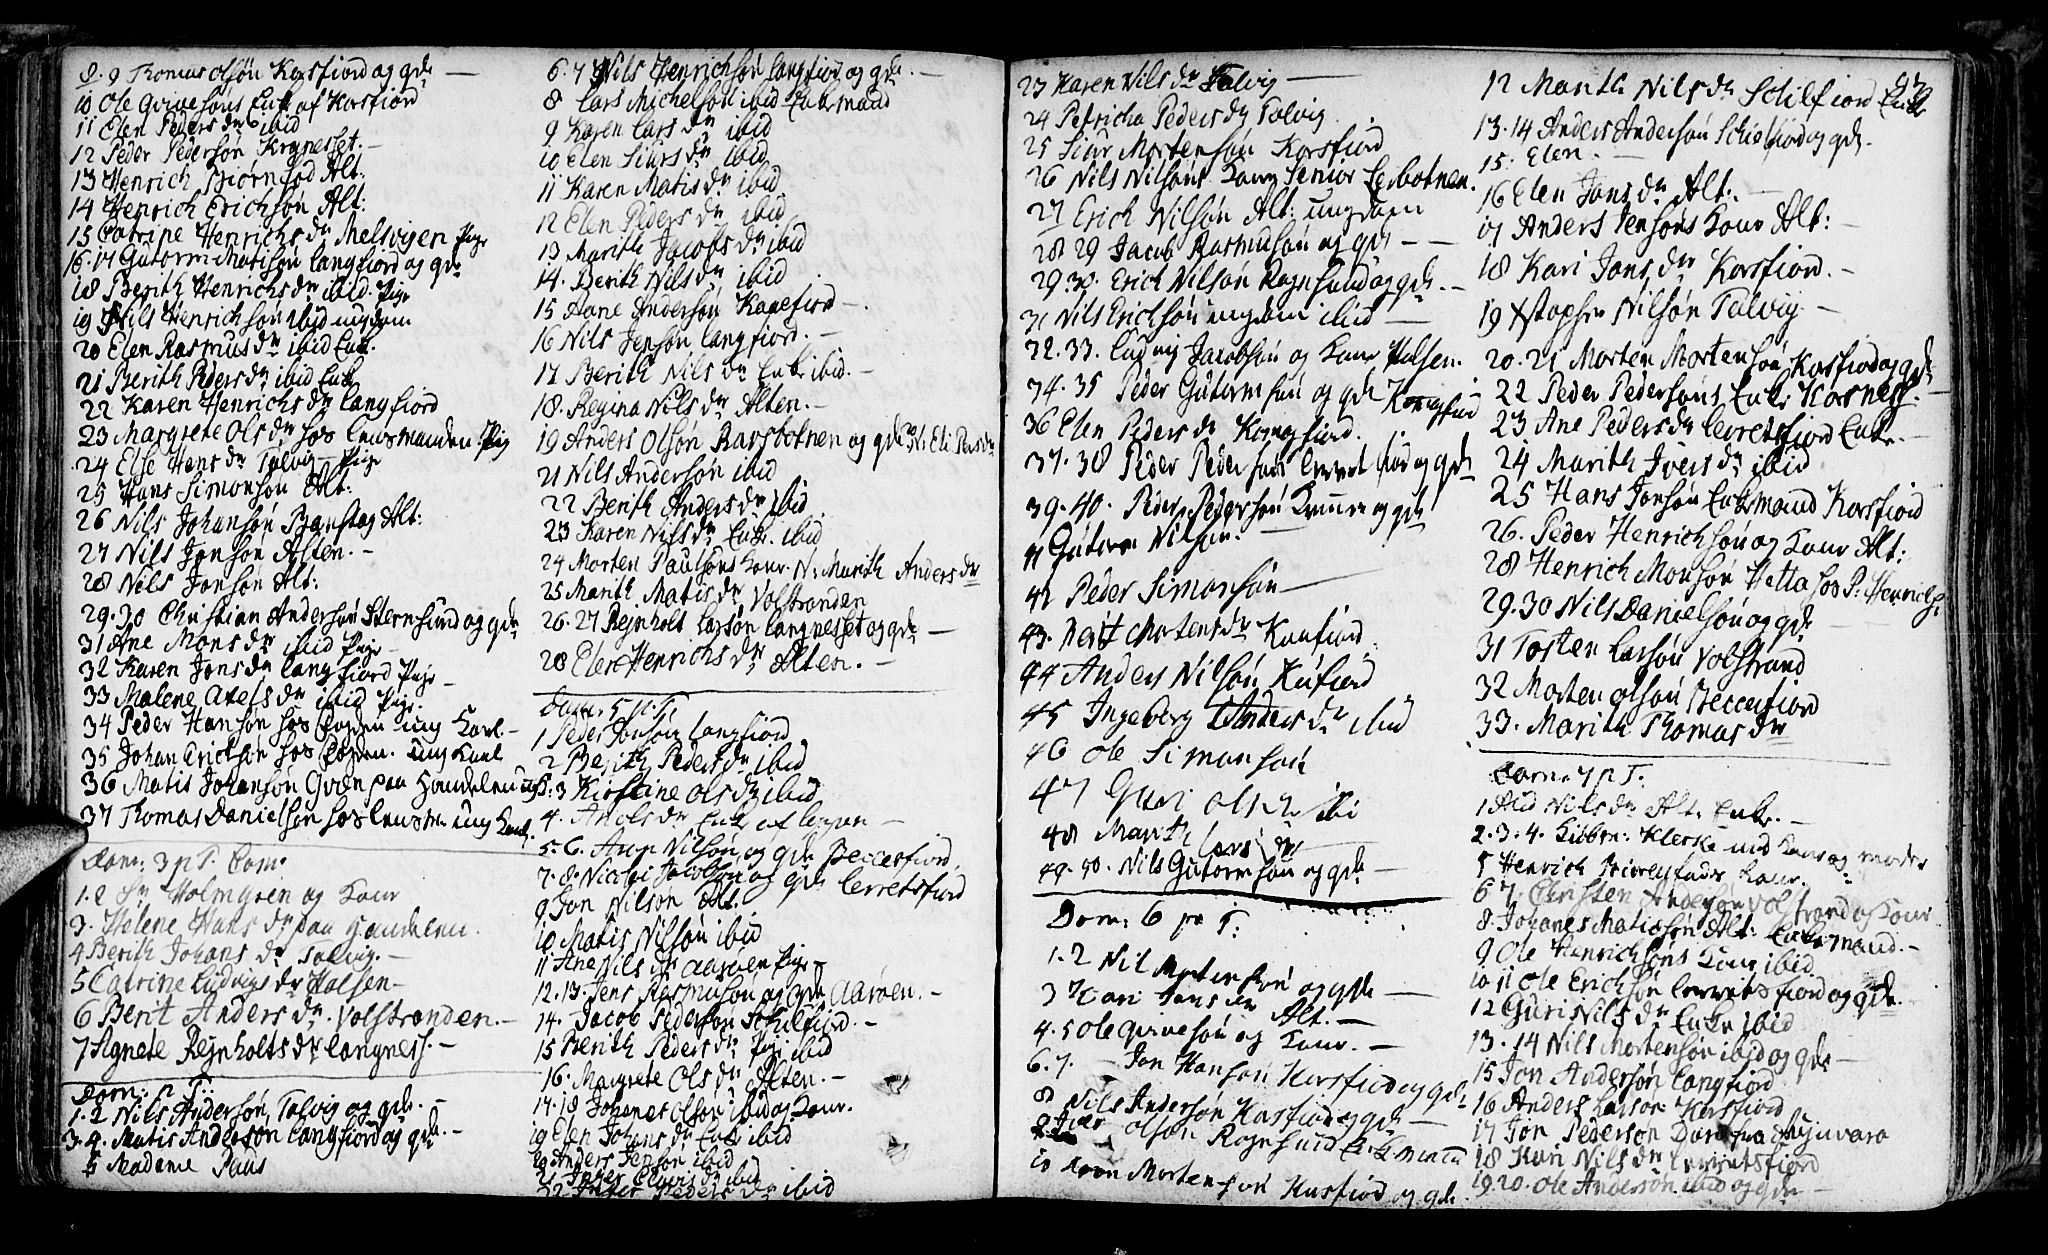 8. 9 Thomas Olsøn Korsfiord og qde
10 Ole Enke af Korsfiord
11 Elen Peders dr ibid
12 Peder Pedersøn Kragneset.
13 Henrich Biørn Alt:
14 Henrich Erichsøn Alt:
15 Catrine Henrichs dr Melsvigen Pige
16. 17 Gutorm Matisøn Langfiord og qde
18 Berith Henrichs dr ibid. Pige
19 Nils Henrichsøn ibid ungdom
20 Elen Rasmus dr ibid Enk.
21 Berith Peders dr ibid Enk
22 Karen Henrichs dr Langfiord
23 Margrete Ols dr hos Lensmanden Pig
24 Else Hans dr Talvig - Pige
25 Hans Simonsøn Alt:
26 Nils Johansøn Alt:
27 Nils Jonsøn Alten. -
28 Nils Jonsøn Alt:
29. 30 Christian Andersøn Sternsund og qde
31 Ane Mons dr ibid Pige
32 Karen Jons dr Langfiord Pige -
33 Malene Axels dr ibid Pige.
34 Peder Hansøn hos Fogden ung Karl -
35 Johan Erichsøn hos Fogden. ung Karl
36 Matis Johansøn Qvæn paa Handelen
37 Thomas Danielsøn hos Lensm. ung Karl.
Dom: 3 p T. Com:
1. 2 Sr Holmgren og Kone
3. Helene Hans dr paa Handelen.
4 Berith Johans dr Talvig. -
5 Catrine Ludvigs dr Halsen -
6 Berit Anders dr. Volstranden. -
7 Agnete Rejnholts dr Langness. -
Dom: p T:
1. 2 Nils Andersøn Talvig og qde. -
3. 4. Matis Andersøn Langfiord og qde. -
5 Madame Paus
6. 7 Nils Henrichsøn Langfiord og qde. -
8 Lars Michelsøn ibid Enkemand
9 Karen Lars dr ibid
10 Elen Siurs dr ibid
11 Karen Matis dr ibid
12 Elen Peders dr ibid
13 Marith Jacobs dr ibid
14. Berith Nils dr ibid
15 Ane Andersøn Kaafiord -
16 Nils Jensøn Langfiord. -
17 Berith Nils dr Enke ibid. -
18. Regina Nils dr Alten. -
19 Anders Olsøn Rafsbotnen og qde
21 Nils Andersøn ibid
22 Berith Anders dr ibid
23 Karen Nils dr Enk. ibid
24 Morten Paulsøns Kone N: Marith Anders dr
25 Marith Matis dr Volstranden
26. 27 Rejnholt Larsøn Langnesset og qde -
28 Elen Henrichs dr Alten. -
Dom: 5 p T.
1 Peder Jonsøn Langfiord
2 Berith Peders dr ibid
3 Kirstine Ols dr ibid
4. Ane Ols dr Enke af
5. 6. Nilsøn og qde Beccerfiord.
7. 8. Nicolai Jacobsøn og qde Lerretsfiord
9 Jon Nilson Alt.
10 Matis Nilsøn ibid
11 Ane Nils dr Aarøen Pige -
12. 13. Jens Rasmusøn og qde Aarøen. -
14. Jacob Pedersøn Schilfiord. -
15 Berith Peders dr Pige ibid
16. Margrete Ols dr Alten. -
17. 18 Johanes Olsøn ibid og Kone.
19 Elen Johans dr Enk ibid
20 Anders Jensøn ibid
21 Inger dr ibid
22 Inger Peders dr ibid
23 Karen Nils dr Talvig
24 Petricha Peders dr Talvig
25 Siur Mortensøn Korsfiord
26 Nils Nilsøns Kone Senior Lerbotnen.
27 Erich Nilsøn Alt: ungdom
28 29 Jacob Rasmusøn og qde - -
29. 30. Erich Nilsøn Rognsund og qde. -
31 Nils Erichsøn ungdom ibid -
32. 33. Ludvig Jacobsøn og Kone Halsen.
34. 35 Peder Gutormsøn og qde Komagfiord
36 Elen Peders dr Komagfiord.
37. 38 Peder Pedersøn Lerretsfiord og qde
39. 40. Peder Pedersøn og qde
41 Gutorm Nilsøn. -
42 Peder Simonsøn
43. Berit Mortens dr Kaafiord.
44 Anders Nilsøn Kaafiord
45 Ingeborg Anders dr ibid
46 Ole Simonsøn
47 Guri Ols dr ibi
48 Marith Lars dr
49. 50. Nils Gutormsøn og qde -
Dom: 6 p T:
1. 2 Nils Mortensøn og qde -
3 Kari Jons dr Alt. -
4. 5 Ole og Kone. -
6. 7. Jon Hansøn Korsfiord og qde
8 Nils Andersøn Korsfiord og qde -
9 Olsøn Rognsund Enkemand
10 Mortensøn Korsfiord og qde
12 Marith Nils dr Schilfiord Enke
13. 14 Anders Andersøn Schielfiord og qde.
15. Elen. -
16 Elen Jons dr Alt: -
17 Anders Jensøns Kone Alt:
18 Kari Jons dr Korsfiord. -
19 Xstopher Nilsøn Talvig -
20. 21 Morten Mortensøn Korsfiord og qde
22 Peder Pedersøns Enke Korsness. -
23 Ane Peders dr Lerretsfiord Enke. -
24 Marith Ivers dr ibid
25 Hans Jonsøn Enkemand Korsfiord
26. Peder Henrichsøn og Kone Alt:
28 Henrich Monsøn Hetta hos P: Henrichs:
29. 30 Nils Danielsøn og qde -
31 Tosten Larsøn Volstrand
32 Morten Olsøn Beccerfiord
33. Marith Thomas dr
Dom: 7 p T.
1 Nils dr Alt: Enke. -
2. 3. 4. Klerke med Kone og moder
5 Henrich Kone.
6. 7 Christen Andersøn Volstrand og Kone
8 Johanes Matisøn Alt: Enkemand. -
9 Ole Henrichsøns Kone ibid
10 11 Ole Erichsøn Lerretsfiord og qde.
12 Guri Nils dr Enke ibid
13. 14 Nils Mortensøn ibid og qde -
15 Jon Andersøn Langfiord
16 Anders Larsøn Korsfiord
17 Jon Pedersøn
18 Kari Nils dr Lerretsfiord
19. 20. Ole Andersøn ibid og qde -